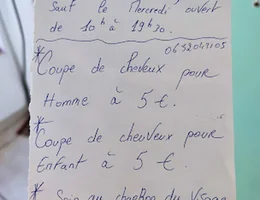 Sauf le Mercredi ouvert
de 10h à 19h30.
0652041105
* Coupe de cheveux pour
Homme à 5 €.
* Coupe de cheuveux pour
Enfant à 5 €.
* Soin au charbon du Visage